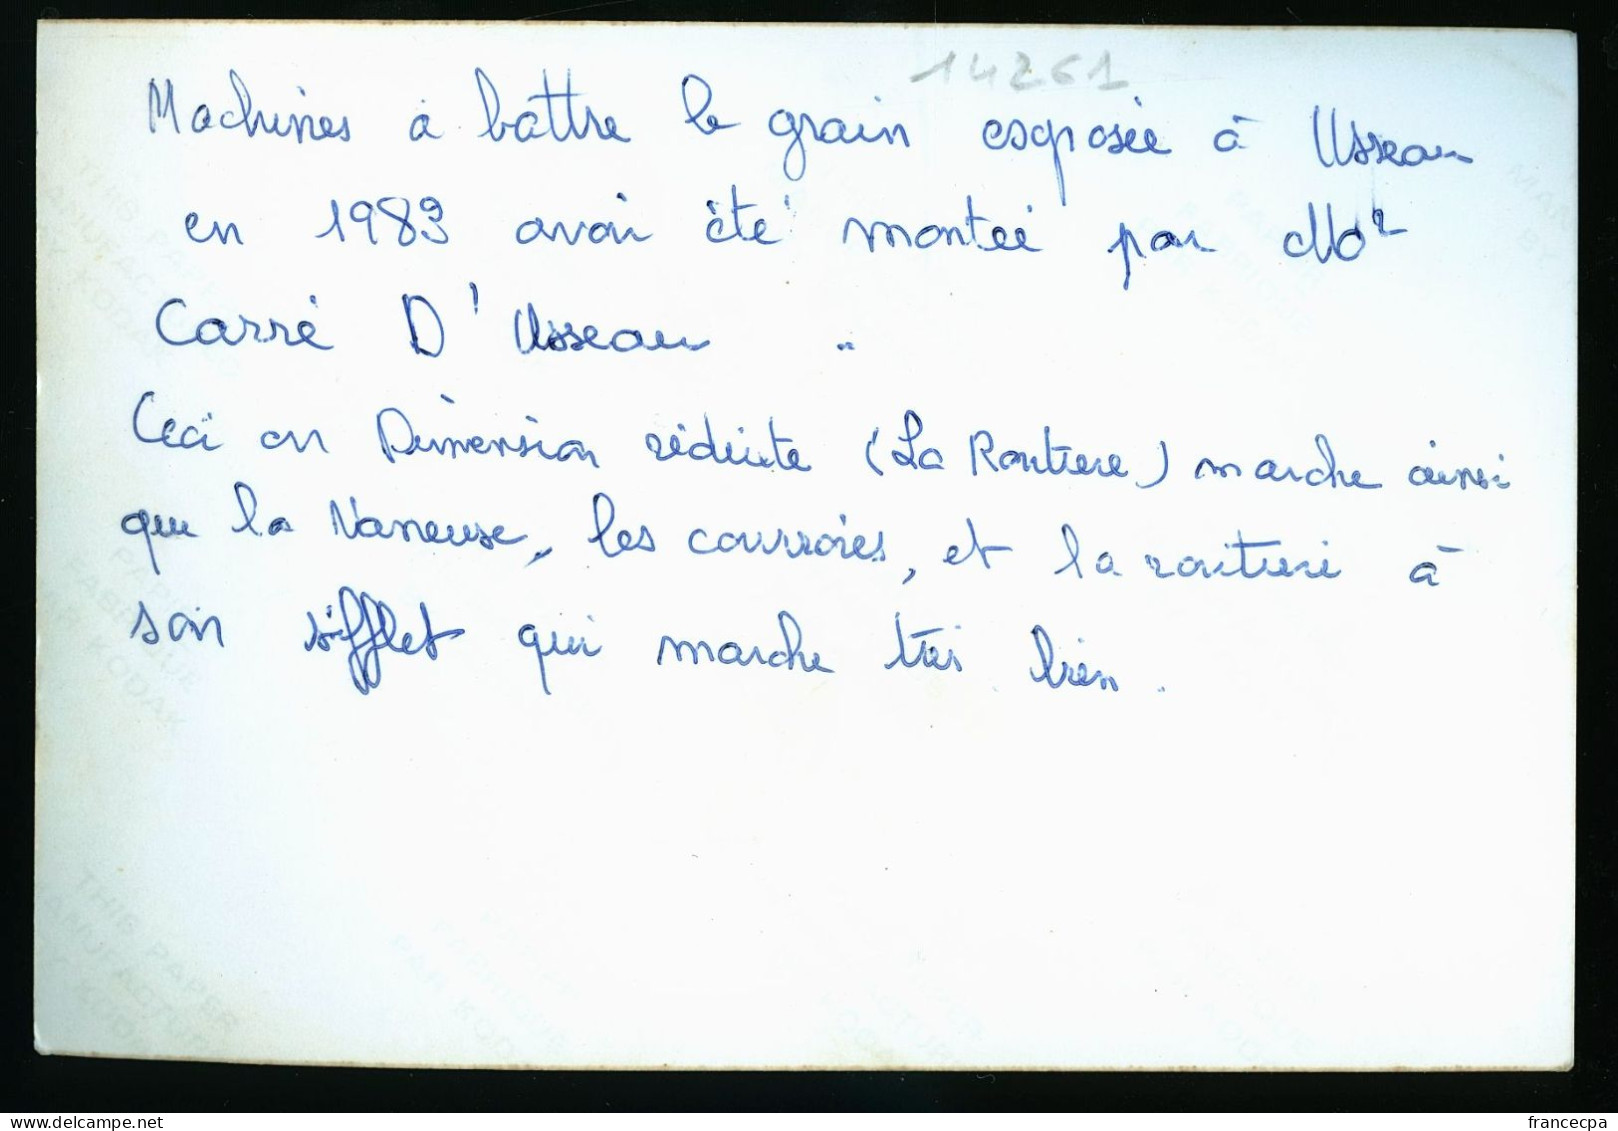 14261
Machines a battre le grain exposée à Usseau
en 1983 avoir été montée par Mr
Carré D'Usseau .
Ceci en Dimension réduite (La Routiere) marche ainsi
que la Vaneuse, les courroies, et la routiere à
son sifflet qui marche très bien .
THIS PAPER
MANUFACTURED
BY KODAK
francecpa